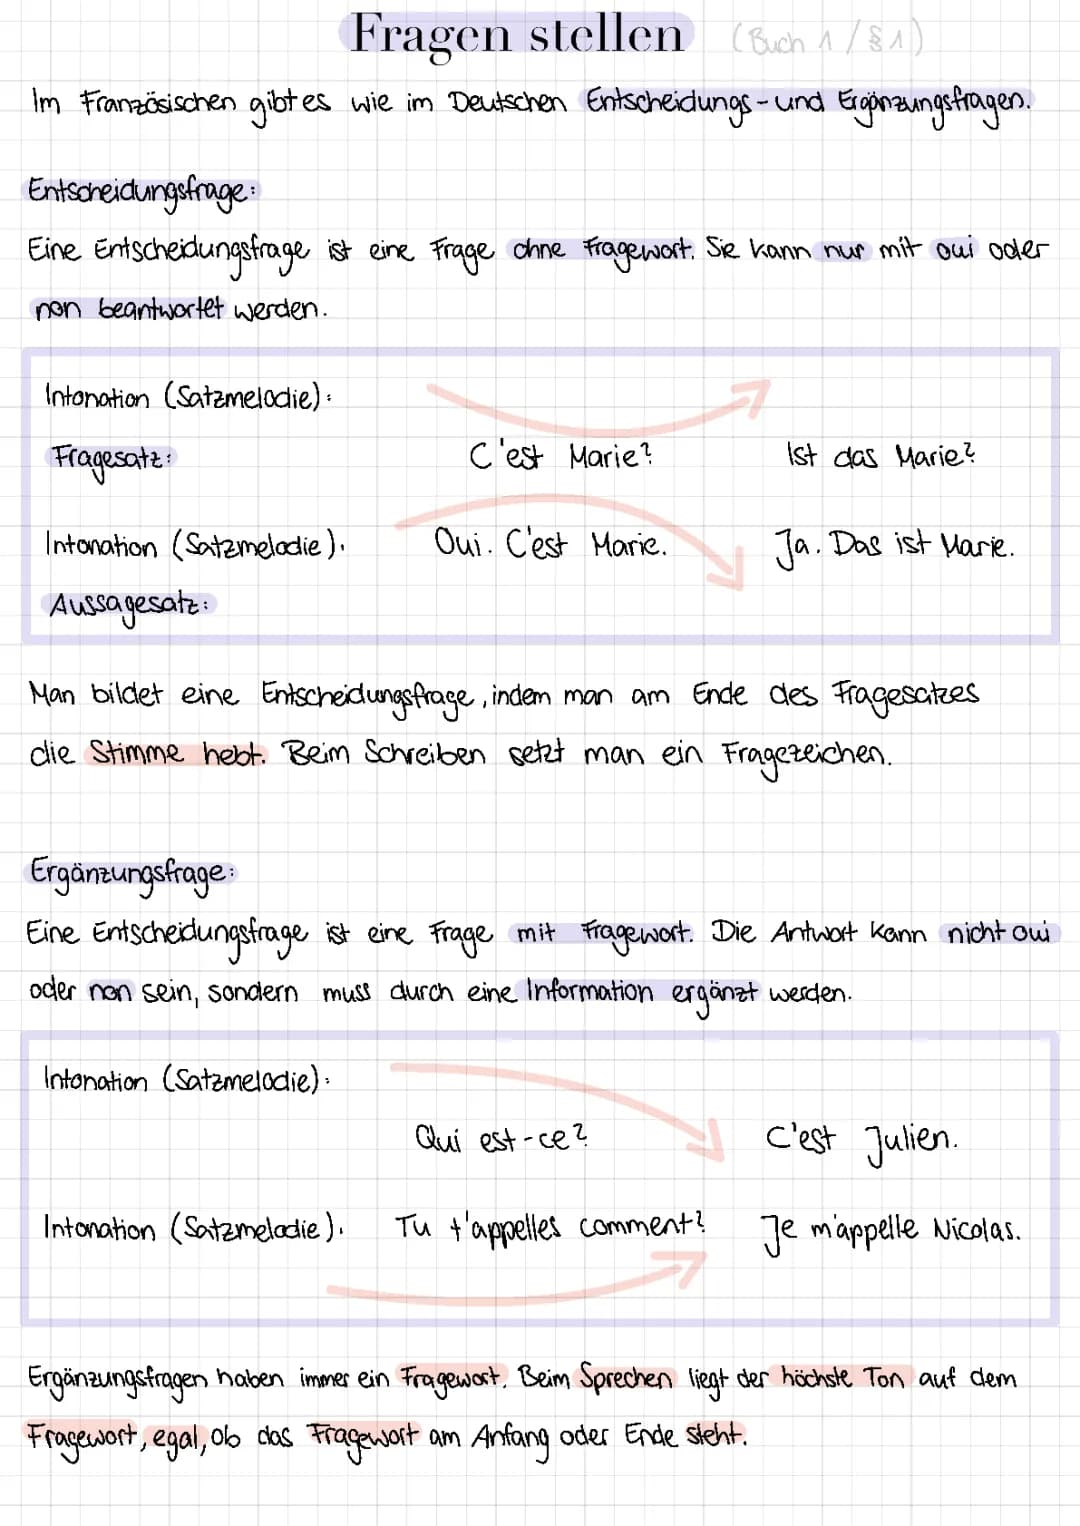 Fragen stellen (Buch 1 / §1)
Im Französischen gibt es wie im Deutschen Entscheidungs- und Ergänzungsfragen.
Entscheidungsfrage:
Eine Entscheidungsfrage ist eine Frage ohne Fragewort. Sie kann nur mit oui oder
non beantwortet werden.
Intonation (Satzmelodie):
Fragesatz: C'est Marie? Ist das Marie?
Intonation (Satzmelodie). Oui. C'est Marie. Ja. Das ist Marie.
Aussagesatz:
Man bildet eine Entscheidungsfrage, indem man am Ende des Fragesatzes
die Stimme hebt. Beim Schreiben setzt man ein Fragezeichen.
Ergänzungsfrage:
Eine Entscheidungsfrage ist eine Frage mit Fragewort. Die Antwort kann nicht oui
oder non sein, sondern muss durch eine Information ergänzt werden.
Intonation (Satzmelodie):
Qui est-ce? C'est Julien.
Intonation (Satzmelodie). Tu t'appelles comment? Je m'appelle Nicolas.
Ergänzungsfragen haben immer ein Fragewort. Beim Sprechen liegt der höchste Ton auf dem
Fragewort, egal, ob das Fragewort am Anfang oder Ende steht.